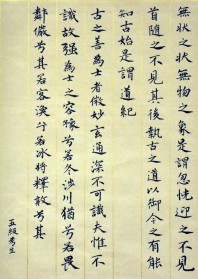 無狀之狀無物之象是謂忽恍迎之不見
首隨之不見其後執古之道以御今之有能
知古始是謂道紀
古之善為士者微妙玄通深不可識夫惟不
識故強為士之容豫兮若冬涉川猶兮若畏
鄰儼兮其若客渙兮若冰將釋敦兮其
五級考生